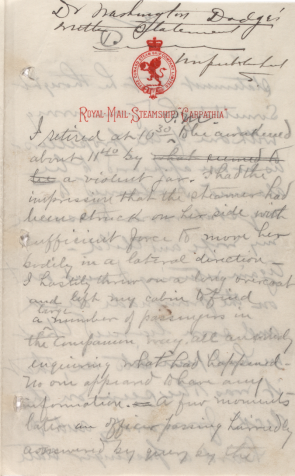 Dr Washington Dodge's
written Statement
unpublished
ROYAL-MAIL-STEAMSHIP "CARPATHIA"
P.M.
I retired at 10 30 to be awakened
about 11 40 by what seemed to
be a violent jar. I had the
impression that the steamer had
been struck on her side with
sufficient force to move her
bodily in a lateral direction –
I hastily threw on a overcoat
and left my cabin to find
large
a number of passengers in
the Companion way, all anxiously
enquiring what had happened –
No one appeared to have any
information. A few moments
later an officer passing hurriedly
answered by the